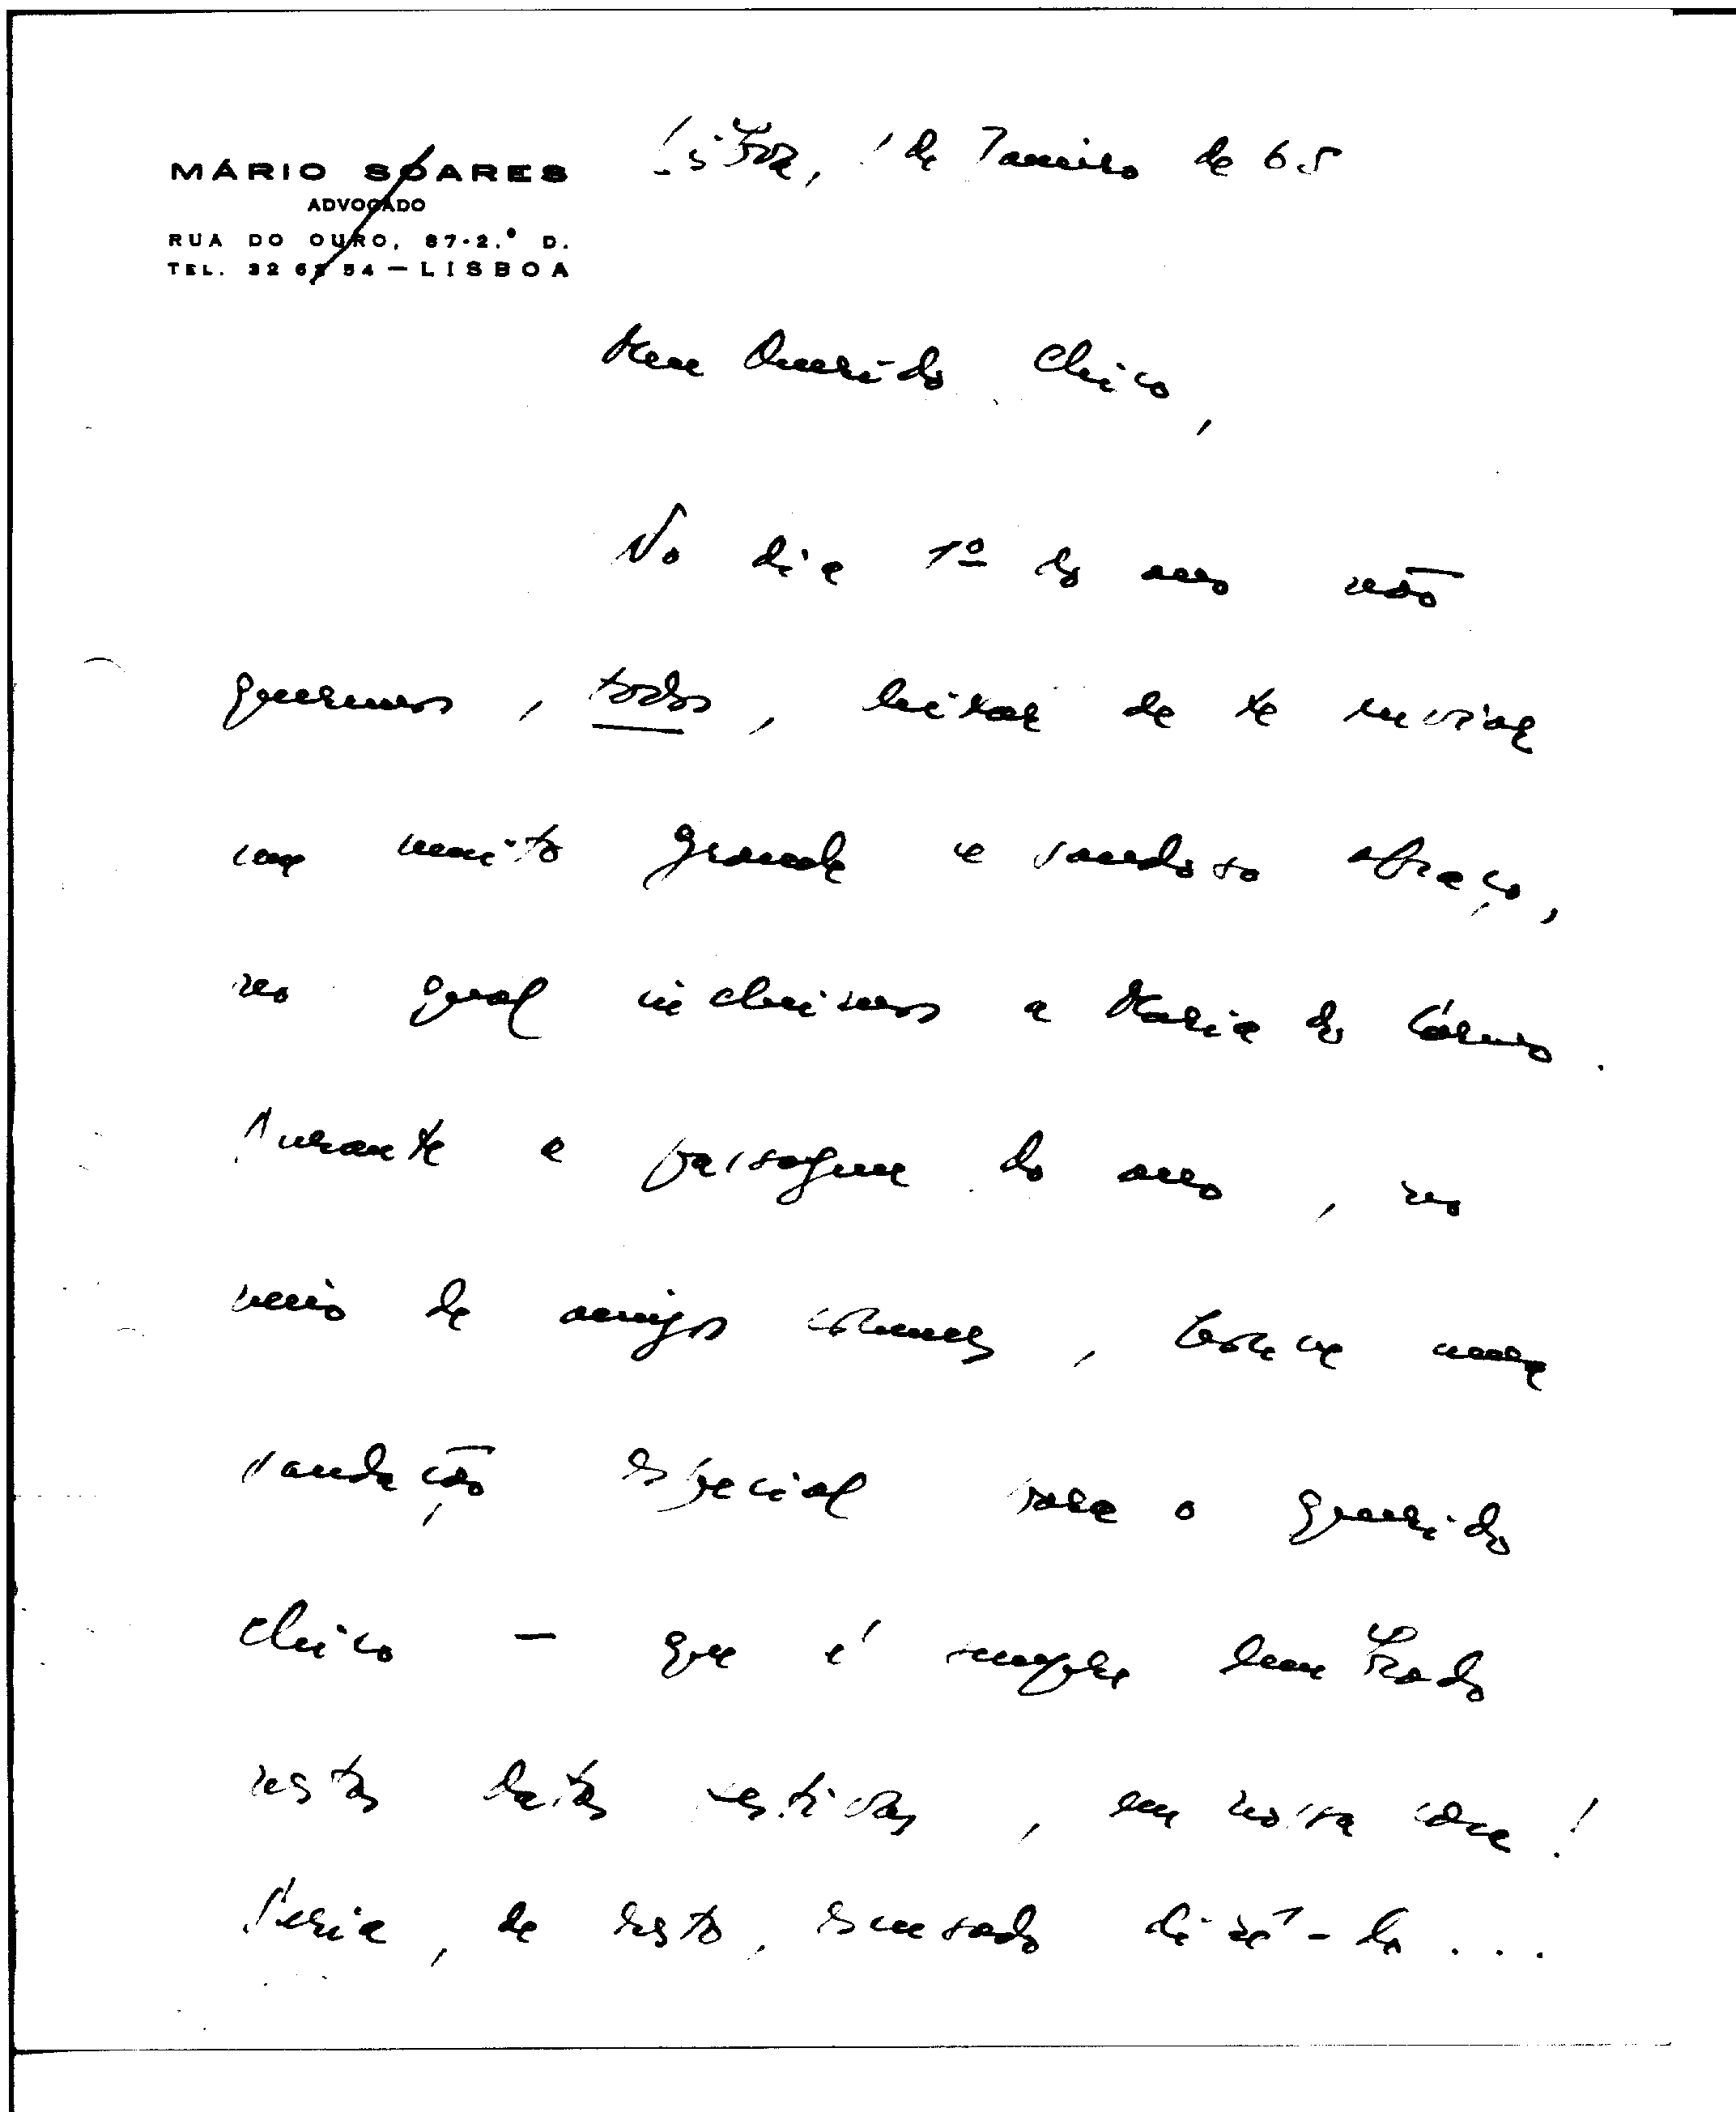 MÁRIO SOARES
ADVOGADO
RUA DO OURO, 87-2.º D.
TEL. 32 63 54 — LISBOA
Lisboa, 1 de Janeiro de 65
Meu Querido Chico,
No dia 1º do ano não
queremos, todos, deixar de te enviar
um muito grande e saudoso abraço,
no qual incluimos a Maria do Cármo.
Durante a passagem do ano, no
meio de amigos comuns, houve uma
saudação especial para o querido
Chico — que é sempre lembrado
nestas datas festivas, em nossa casa!
Seria, de resto, escusado dizê-lo...